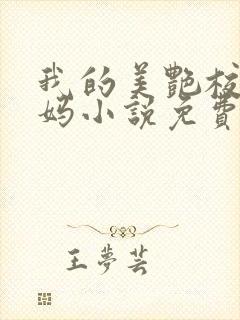 我的美艷校
妈小説免費
王夢芸